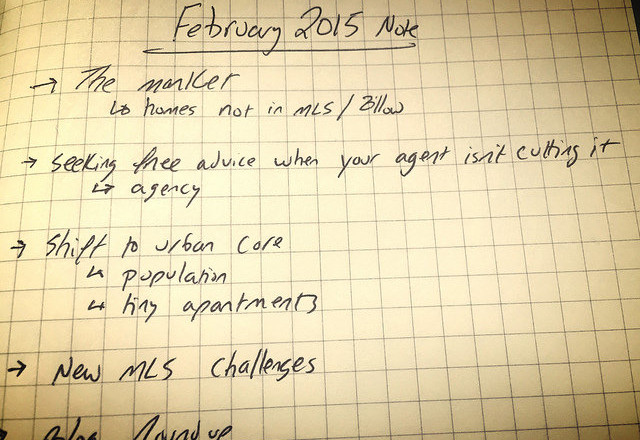 February 2015 Note
→ The market
↳ homes not in MLS / Zillow
→ Seeking free advice when your agent isn't cutting it
↳ agency
→ Shift to urban core
↳ population
↳ tiny apartments
→ New MLS Challenges
→ Blog Roundup